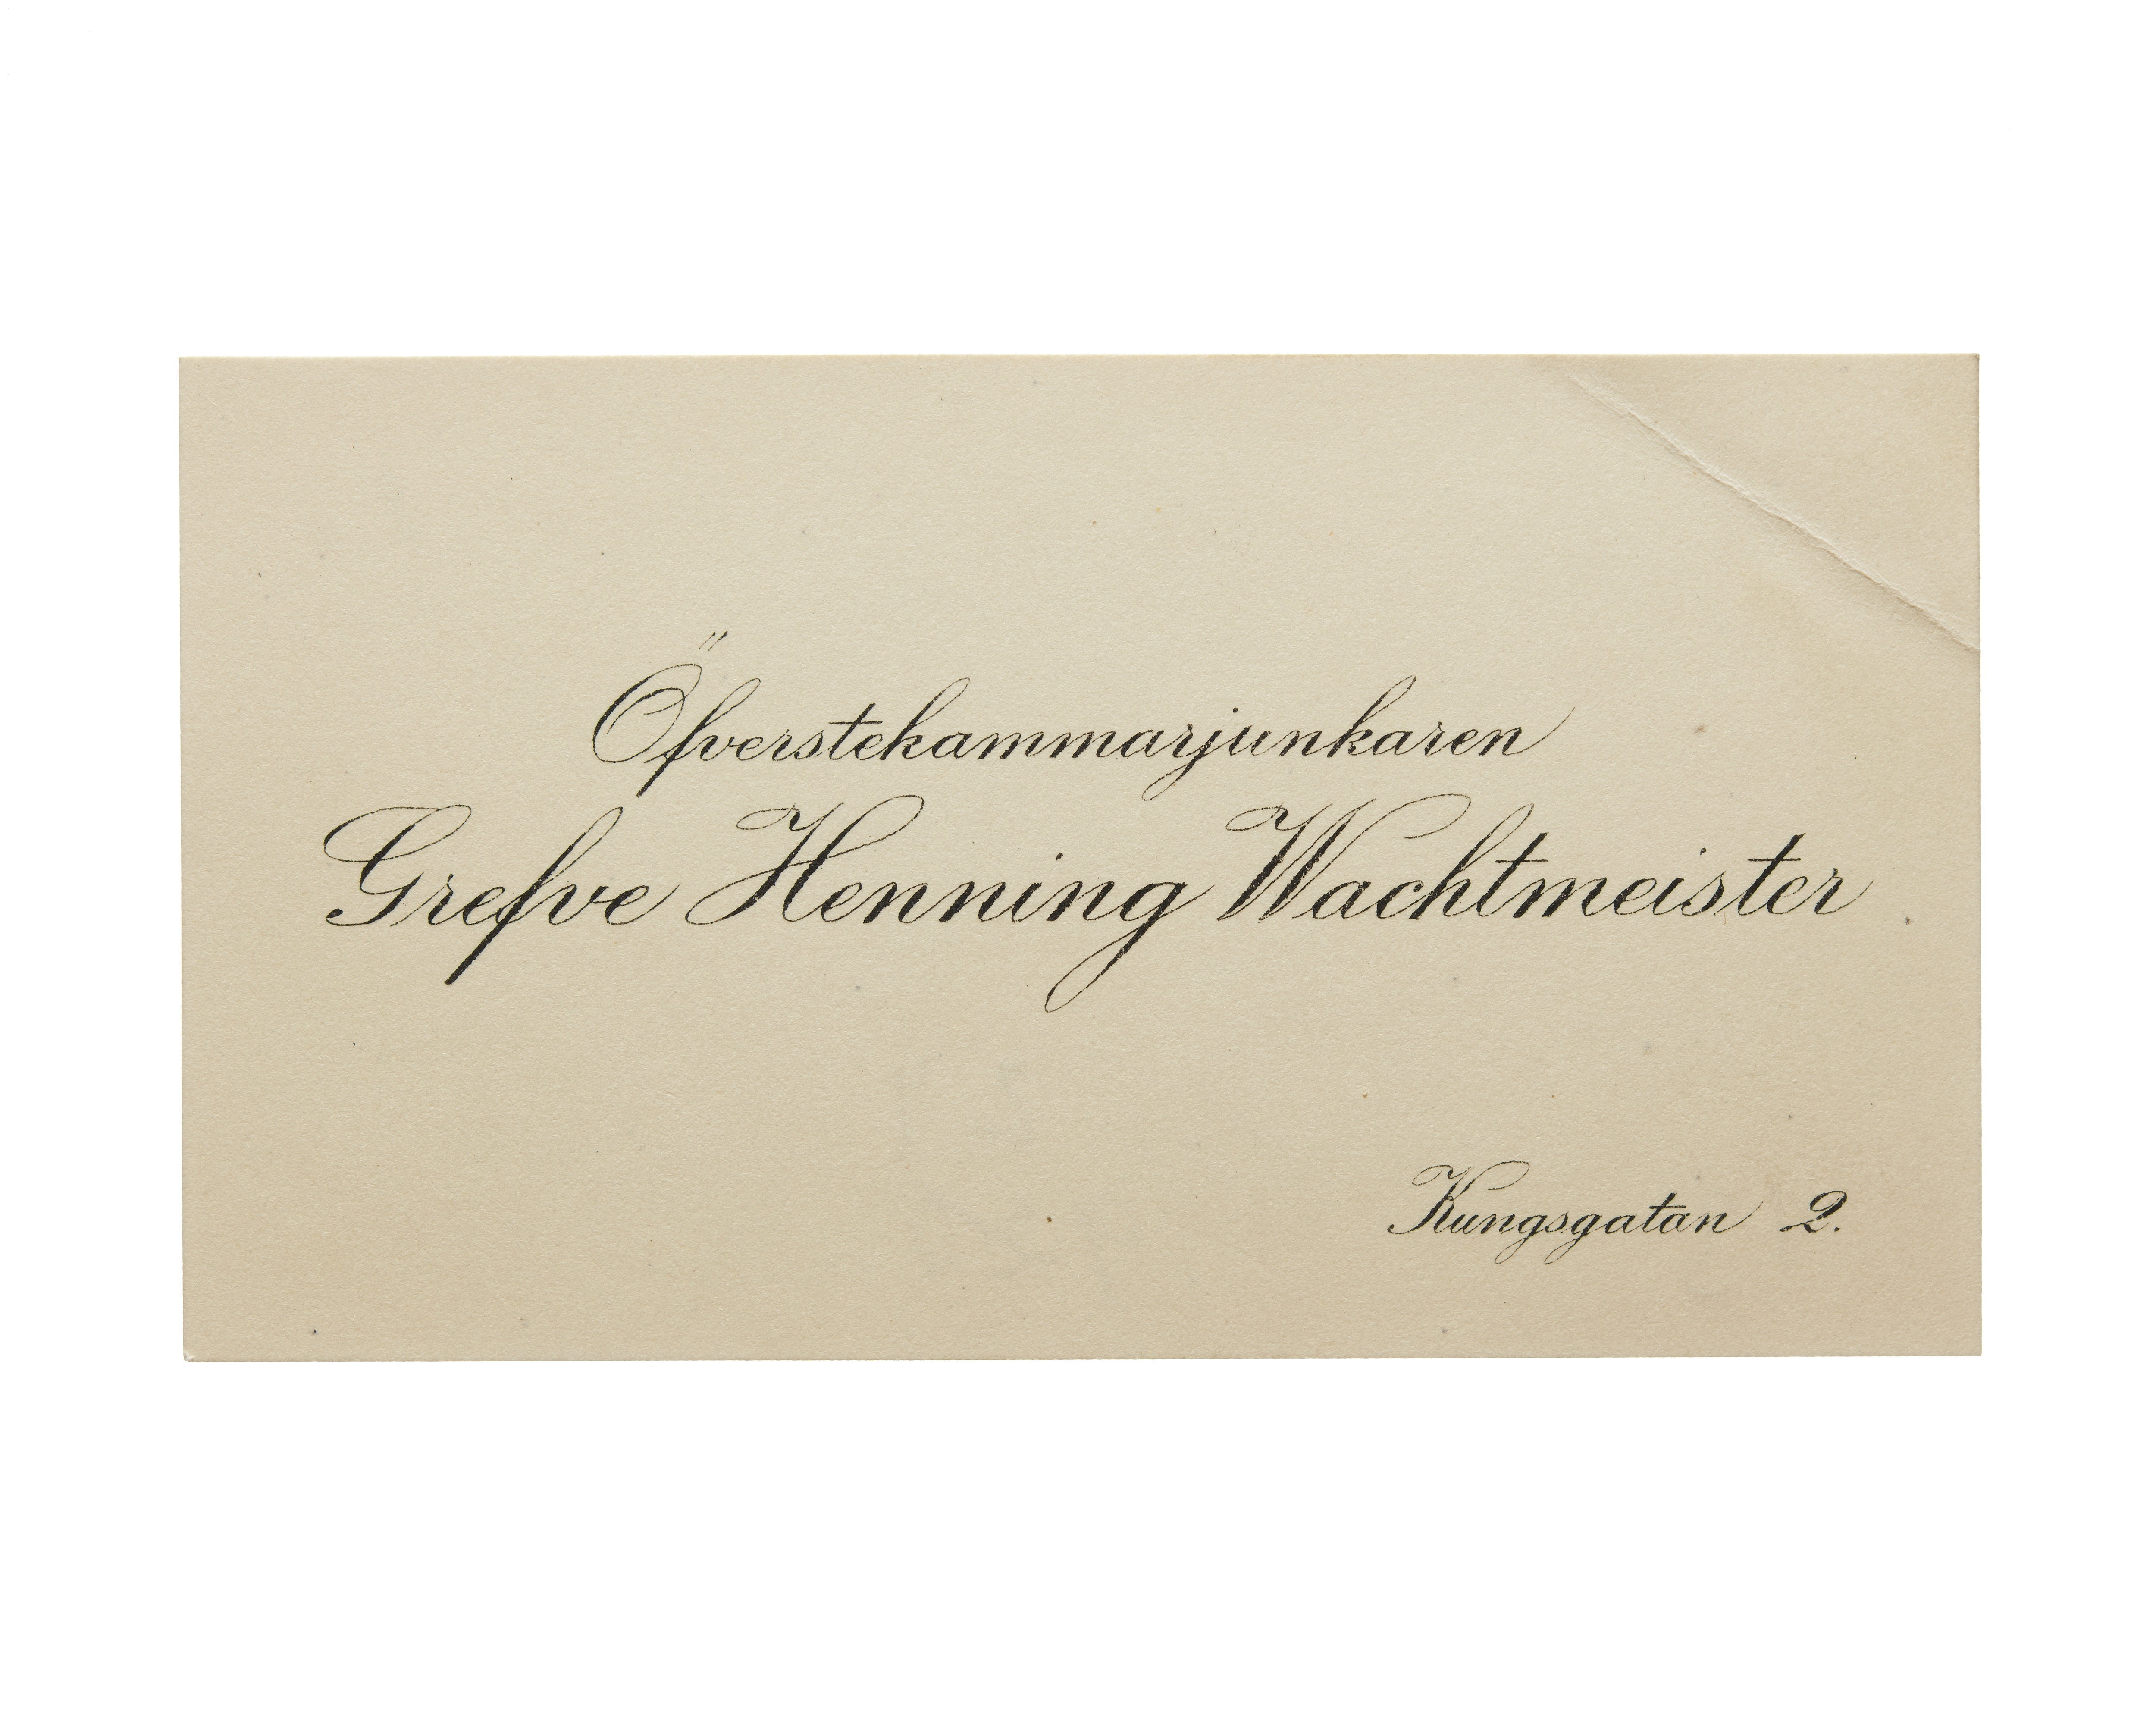 Öfverstekammarjunkaren
Grefve Henning Wachtmeister
Kungsgatan 2.